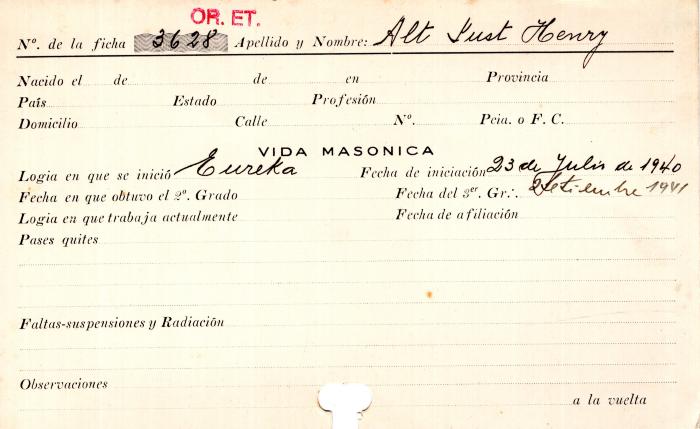 OR. ET.
Nº. de la ficha 3628 Apellido y Nombre: Alt Just Henry
Nacido el de de en Provincia
País Estado Profesión
Domicilio Calle Nº. Pcia. o F. C.
VIDA MASONICA
Logia en que se inició Eureka Fecha de iniciación 23 de Julio de 1940
Fecha en que obtuvo el 2º. Grado Fecha del 3er. Gr∴. 2 Setiembre 1941
Logia en que trabaja actualmente Fecha de afiliación
Pases quites
Faltas-suspensiones y Radiación
Observaciones
a la vuelta